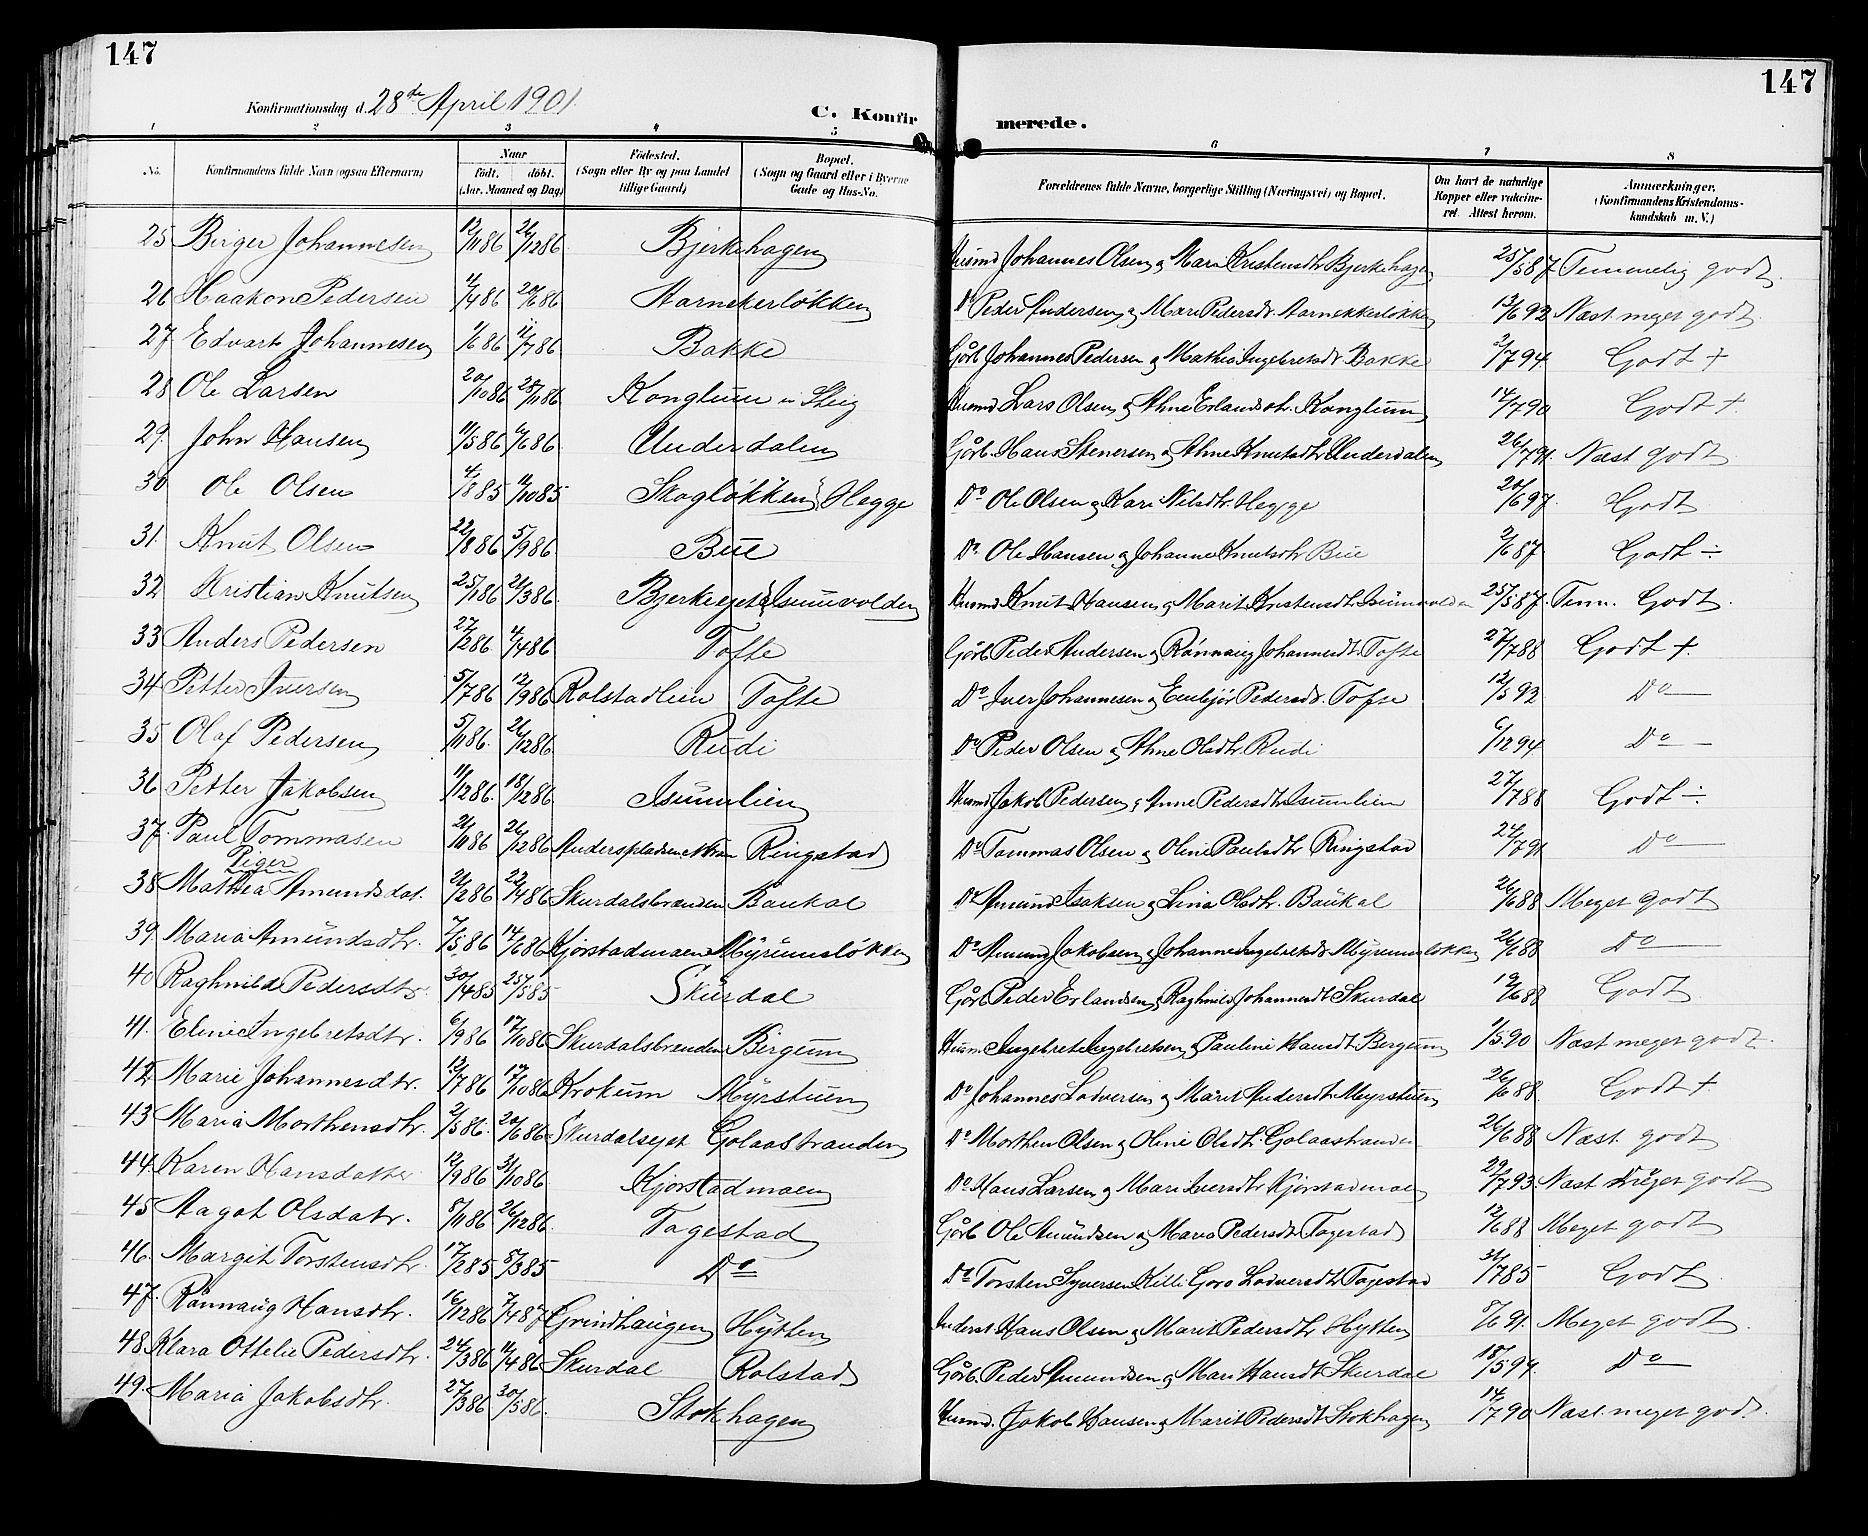 147
147
Konfirmationsdag d. 28de April 1901.
C. Konfir merede.
1 2 3 4 5 6 7 8
No. Konfirmandens fulde Navn (ogsaa Efternavn) Naar födt. döbt. (Aar, Maaned og Dag) Födested. (Sogn eller By og paa Landet tillige Gaard) Bopæl. (Sogn og Gaard eller i Byerne Gade og Hus-No. Forældrenes fulde Navne, borgerlige Stilling (Næringsvei) og Bopæl. Om havt de naturlige Kopper eller vakcineret. Attest herom. Anmærkninger. (Konfirmandens Kristendomskundskab m. V.)
25 Birger Johannesen 12/1186 26/1286 Bjerkehagen Husmd Johannes Olsen og Mari Kristensdtr Bjerkehagen 25/587 Temmelig godt.
26 Haakon Pedersen 2/486 20/686 Aarnekerløkken Do Peder Andersen og Mari Pedersdr. Aarnekkerløkken 13/692 Næst meget godt
27 Edvart Johannesen 1/686 11/786 Bakke Gårb Johannes Pedersen og Mathia Ingebretsdr Bakke 2/794. Godt +
28 Ole Larsen 20/1086 28/1186 Konglum i Steig Husmd Lars Olsen og Ahne Erlandsdtr. Konglum 14/790 Godt +
29. John Hansen 11/586 6/686 Underdalen Gårb. Hans Stenersen og Ahne Knutsdtr Underdalen 26/791. Næst godt
30 Ole Olsen 4/885 4/1085 Skogløkken Hegge Do Ole Olsen og Kari Nilsdtr. Hegge 20/697. Godt
31. Knut Olsen 22/886 5/986 Bue Do Ole Hansen og Johanne Knutsdtr Bue 2/687 Godt ÷
32 Kristian Knutsen 25/186 21/386 Bjerkeeget Isumvolden Husmd Knut Hansen og Marit Kristensdtr Isumvolden 25/587. Tem. Godt.
33 Anders Pedersen 27/286. 4/486 Tofte Gårb Peder Andersen og Rønnaug Johannesdt. Tofte 27/788 Godt +.
34 Petter Iversen 5/786 12/986 Rolstadlien Tofte Do Iver Johannesen og Embjør Pedersdr. Tofte 12/592 Do
35 Olaf Pedersen 5/1186. 26/1286. Rudi Do Peder Olsen og Ahne Olsdtr. Rudi 6/1294 Do
36 Petter Jakobsen 11/1286. 18/1286 Isumlien Husmd Jakob Pedersen og Anne Pedersdtr Isumlien 27/788 Godt ÷.
37. Paul Tommasen 21/1086 26/1286 Anderspladsen Ringstad Do Tommas Olsen og Oline Paulsdtr Ringstad 24/791 Do
Piger
38 Mathea Amundsdat. 21/286 22/486 Skurdalsbrænden Baukal Do Amund Isaksen og Lina Olsdtr. Baukal 26/688 Meget godt
39. Maria Amundsdtr. 7/586 14/686 Kjørstadmoen Myrumsløkken Do Amund Jakobsen og Johanne Ingebretsdr Myrumsløkken 26/688 Do
40 Raghnild Pedersdtr. 30/485 25/585 Skurdal Gårb Peder Erlandsen og Raghnild Johannesdt Skurdal 19/688 Godt
41. Eline Ingebretsdtr. 6/986 17/1086 Skurdalsbrænden Bergum Husm Ingebret Ingebretsen og Pauline Hansdt Bergum 1/590 Næst meget godt.
42. Marie Johannesdtr. 12/786 17/1086 Krokum Myrstuen Do Johannes Lodversen og Marit Andersdt. Myrstuen 26/688. Godt +
43 Maria Morthensdtr. 2/586. 20/686 Skurdalseget Golaastranden Do Morthen Olsen og Oline Olsdtr. Golaastranden 26/688 Næst godt
44. Karen Hansdatter 12/986 31/1086 Kjørstadmoen Do Hans Larsen og Mari Iversdtr Kjørstadmoen 29/793. Næst meget godt
45. Aagot Olsdatr. 8/1186 26/1286. Tagestad Gårb Ole Amundsen og Maria Pedersdt Tagestad 12/688 Meget godt
46. Margit Torstensdtr. 17/285 8/385 Do Do Torsten Syversen Kille Goro Lodversdtr Tagestad 31/785 Godt
47. Rønnaug Hansdtr. 16/1286 7/487 Grindhaugen Hytten Inderst Hans Olsen og Marit Pedersdtr Hytten 8/691. Meget godt
48 Klara Ottelie Pedersdtr. 24/386 11/486 Skurdal Rolstad Gårb. Peder Amundsen og Mari Hansdt Skurdal 18/594. Do
49. Maria Jakobsdtr. 27/386 30/586. Stokhagen Husmd. Jakob Hansen og Marit Pedersdt Stokhagen 14/790 Næst meget godt.